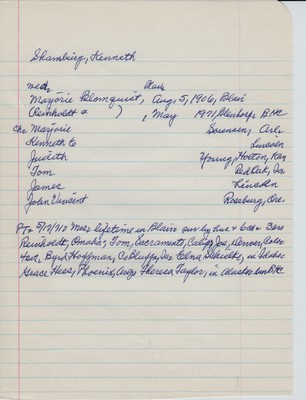 Shamburg, Kenneth
wed,
Marjorie Blomquist, Aug. 5, 1906, Blair
Reinholdt & ) , May 1971, B.H.C
Ch: Marjorie Sorensen, Arl.
Kenneth Co Lincoln
Judith Young, Horton, Kan
Tom Red Oak, Ia.
James Lincoln
John Vincent Roseburg, Ore.
PT= 5/17/ lifetime in Blair sur by hus & 6ch & 3bro
Reinholdt, Omaha, Tom, Sacramento, Calif, Joe, Denver, Colo
4sis, Byrd Hoffman, Co Bluffs, Ia. Edna in Idaho
Grace Hess, Phoenix, Ariz Theresa Taylor, in Alaska bur B.H.C